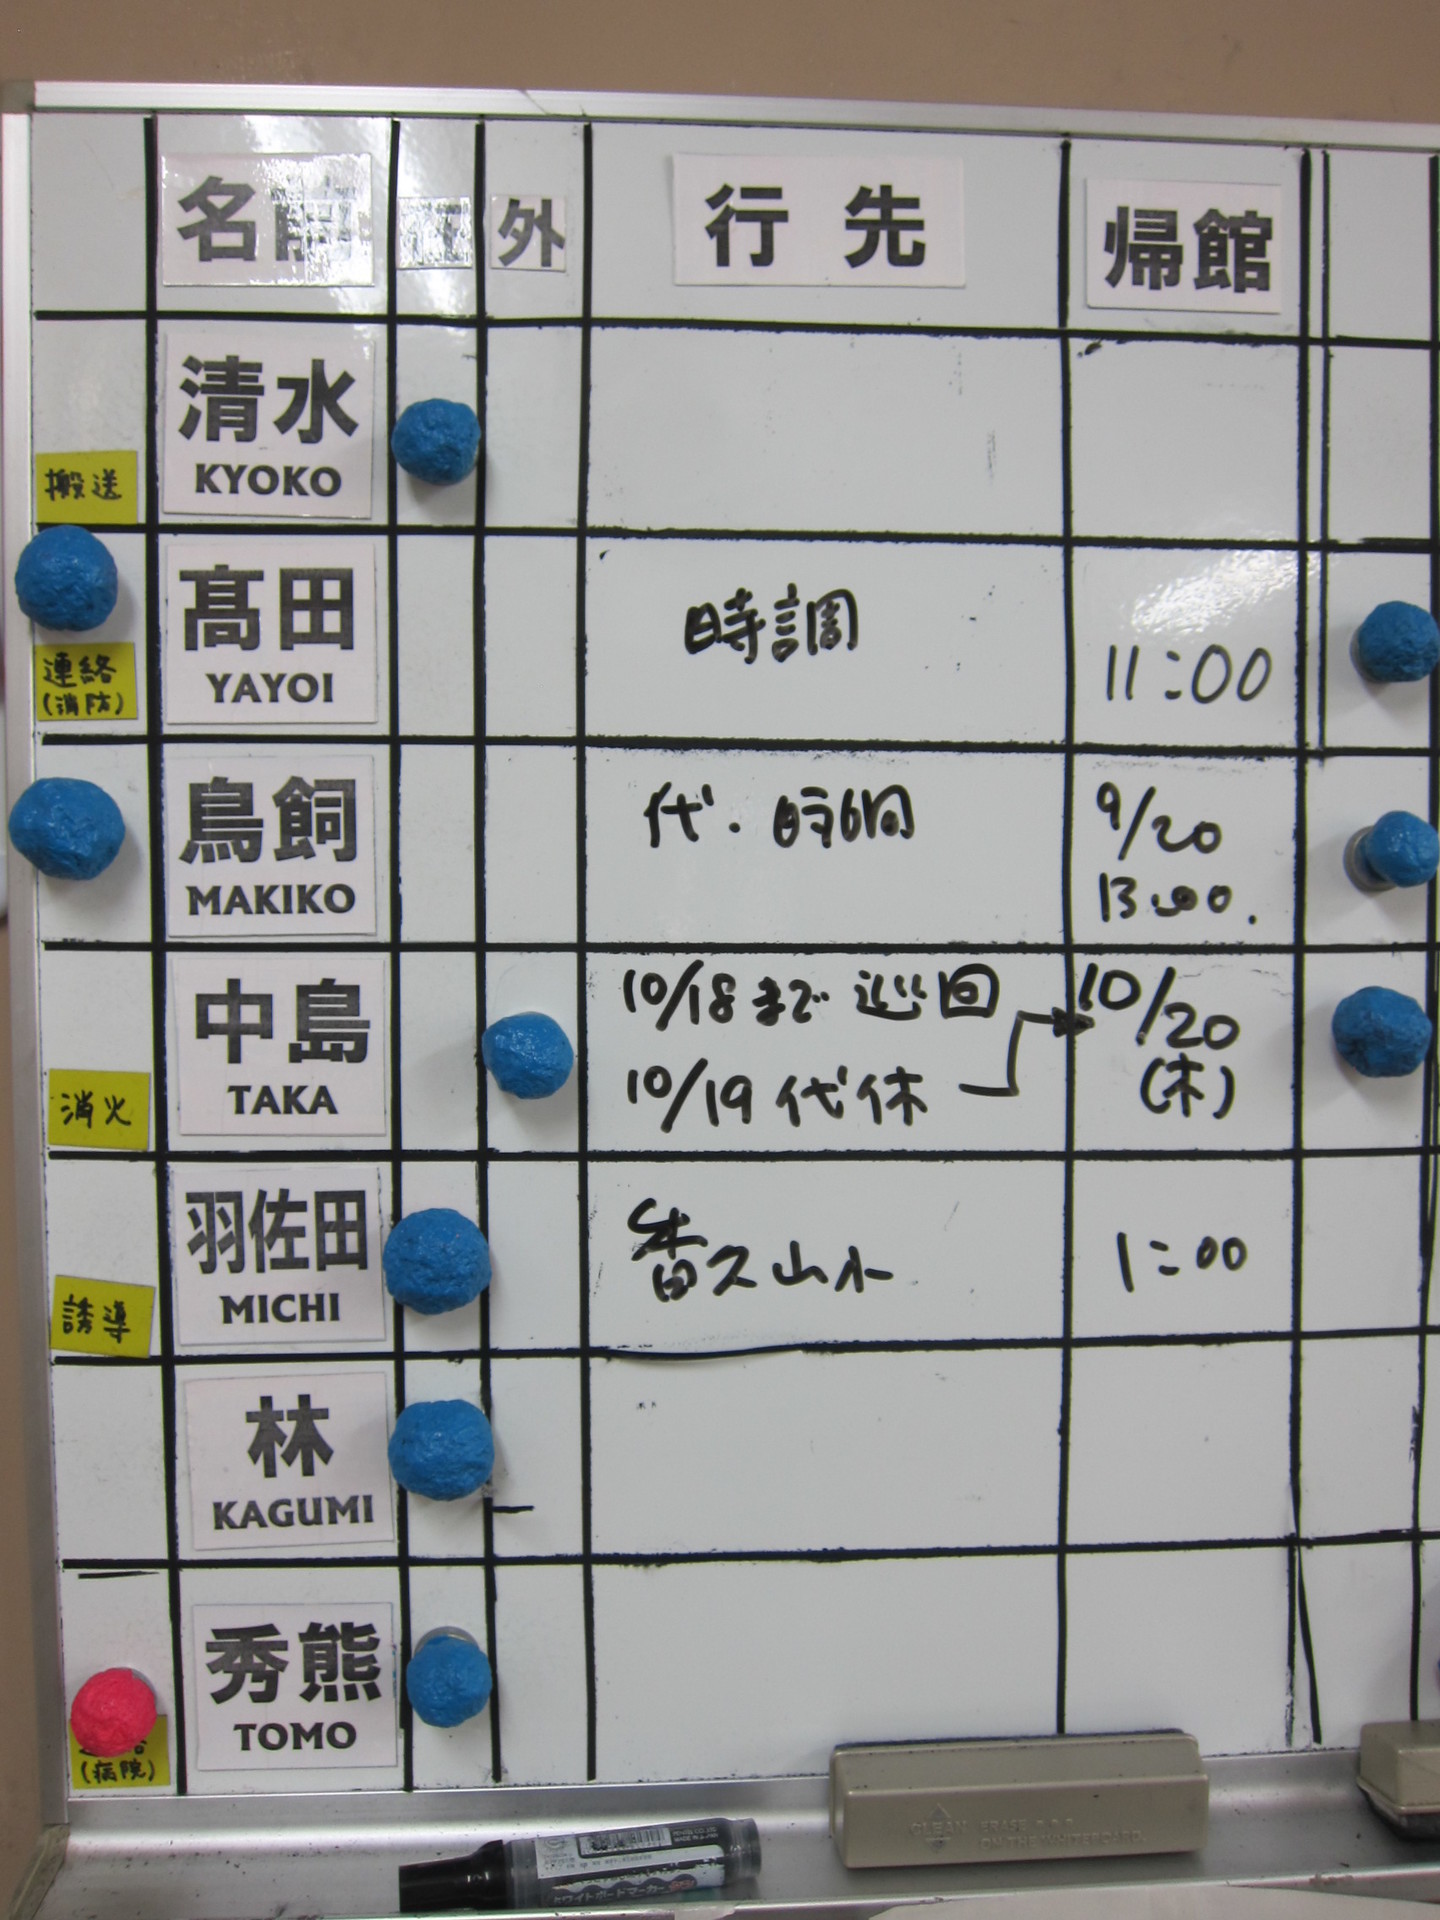 名前 在 外 行先 帰館
清水
KYOKO
搬送
髙田
YAYOI
時調
11:00
連絡
(消防)
鳥飼
MAKIKO
代・時調
9/20
13:00.
中島
TAKA
10/18まで 巡回
10/19 代休
10/20
(木)
消火
羽佐田
MICHI
香久山小
1:00
誘導
林
KAGUMI
秀熊
TOMO
(病院)
CLEAN ERASE
ON THE WHITEBOARD
ホワイトボードマーカー